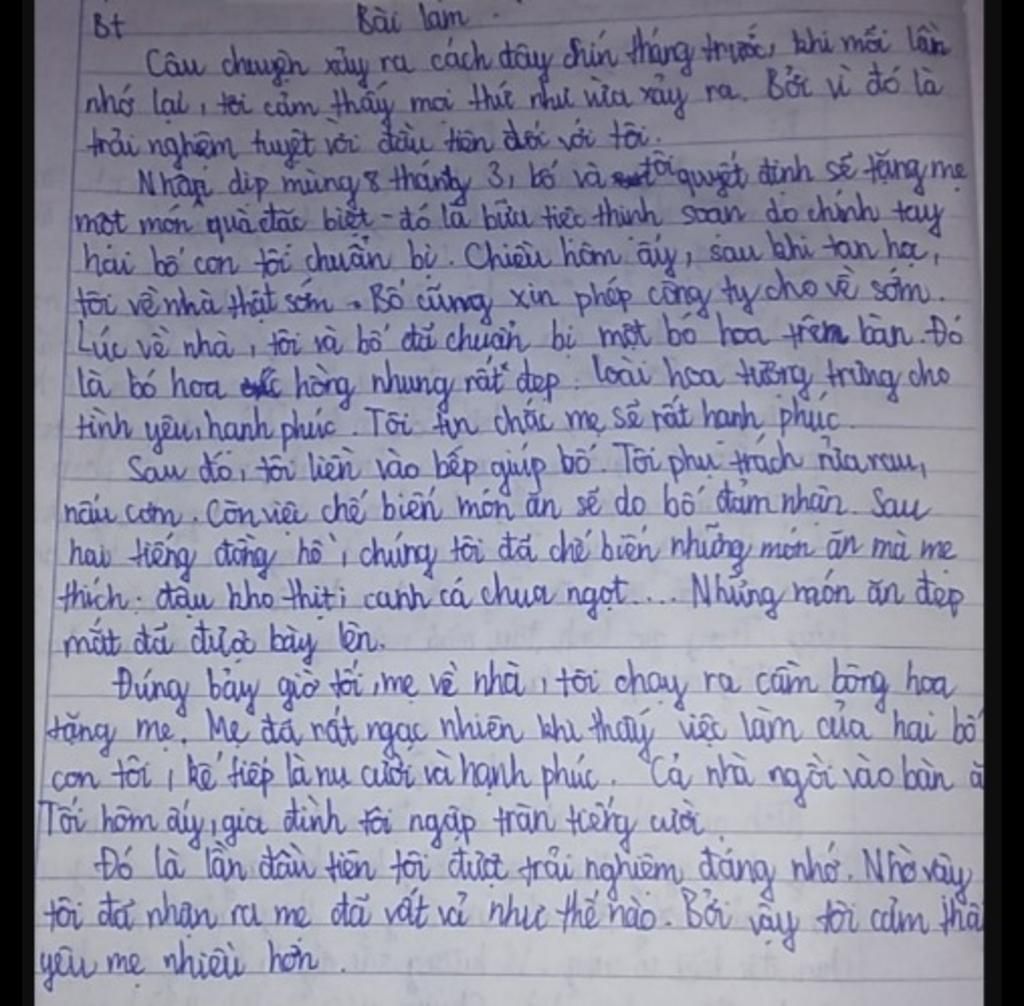 Bt Bài làm.
Câu chuyện xảy ra cách đây chín tháng trước, khi mỗi lần
nhớ lại, tôi cảm thấy mọi thứ như vừa xảy ra. Bởi vì đó là
trải nghiệm tuyệt vời đầu tiên đối với tôi.
Nhân dịp mùng 8 tháng 3, bố và tôi quyết định sẽ tặng mẹ
một món quà đặc biệt - đó là bửu tiệc thịnh soạn do chính tay
hai bố con tôi chuẩn bị. Chiều hôm ấy, sau khi tan học,
tôi về nhà thật sớm. Bố cũng xin phép công ty cho về sớm.
Lúc về nhà, tôi và bố đã chuẩn bị một bó hoa trên bàn. Đó
là bó hoa hồng nhung rất đẹp. loài hoa tượng trưng cho
tình yêu, hạnh phúc. Tôi tin chắc mẹ sẽ rất hạnh phúc.
Sau đó, tôi liền vào bếp giúp bố. Tôi phụ trách rửa rau,
nấu cơm. Còn việc chế biến món ăn sẽ do bố đảm nhận. Sau
hai tiếng đồng hồ, chúng tôi đã chế biến những món ăn mà mẹ
thích: đậu kho thịt; canh cá chua ngọt... Những món ăn đẹp
mắt đã được bày lên.
Đúng bảy giờ tối, mẹ về nhà, tôi chạy ra cầm bông hoa
tặng mẹ. Mẹ đã rất ngạc nhiên khi thấy việc làm của hai bố
con tôi, kế tiếp là nụ cười và hạnh phúc. Cả nhà ngồi vào bàn ă
Tối hôm ấy, gia đình tôi ngập tràn tiếng cười.
Đó là lần đầu tiên tôi được trải nghiệm đáng nhớ. Nhờ vậy
tôi đã nhận ra mẹ đã vất vả như thế nào. Bởi vậy tôi cảm thấ
yêu mẹ nhiều hơn.